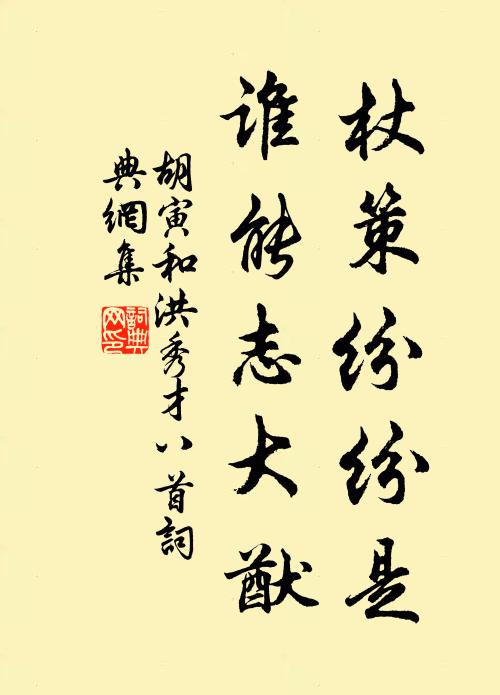 杖策纷纷是
谁能志大猷
胡寅和洪秀才八首詞
典網集
詞典网印